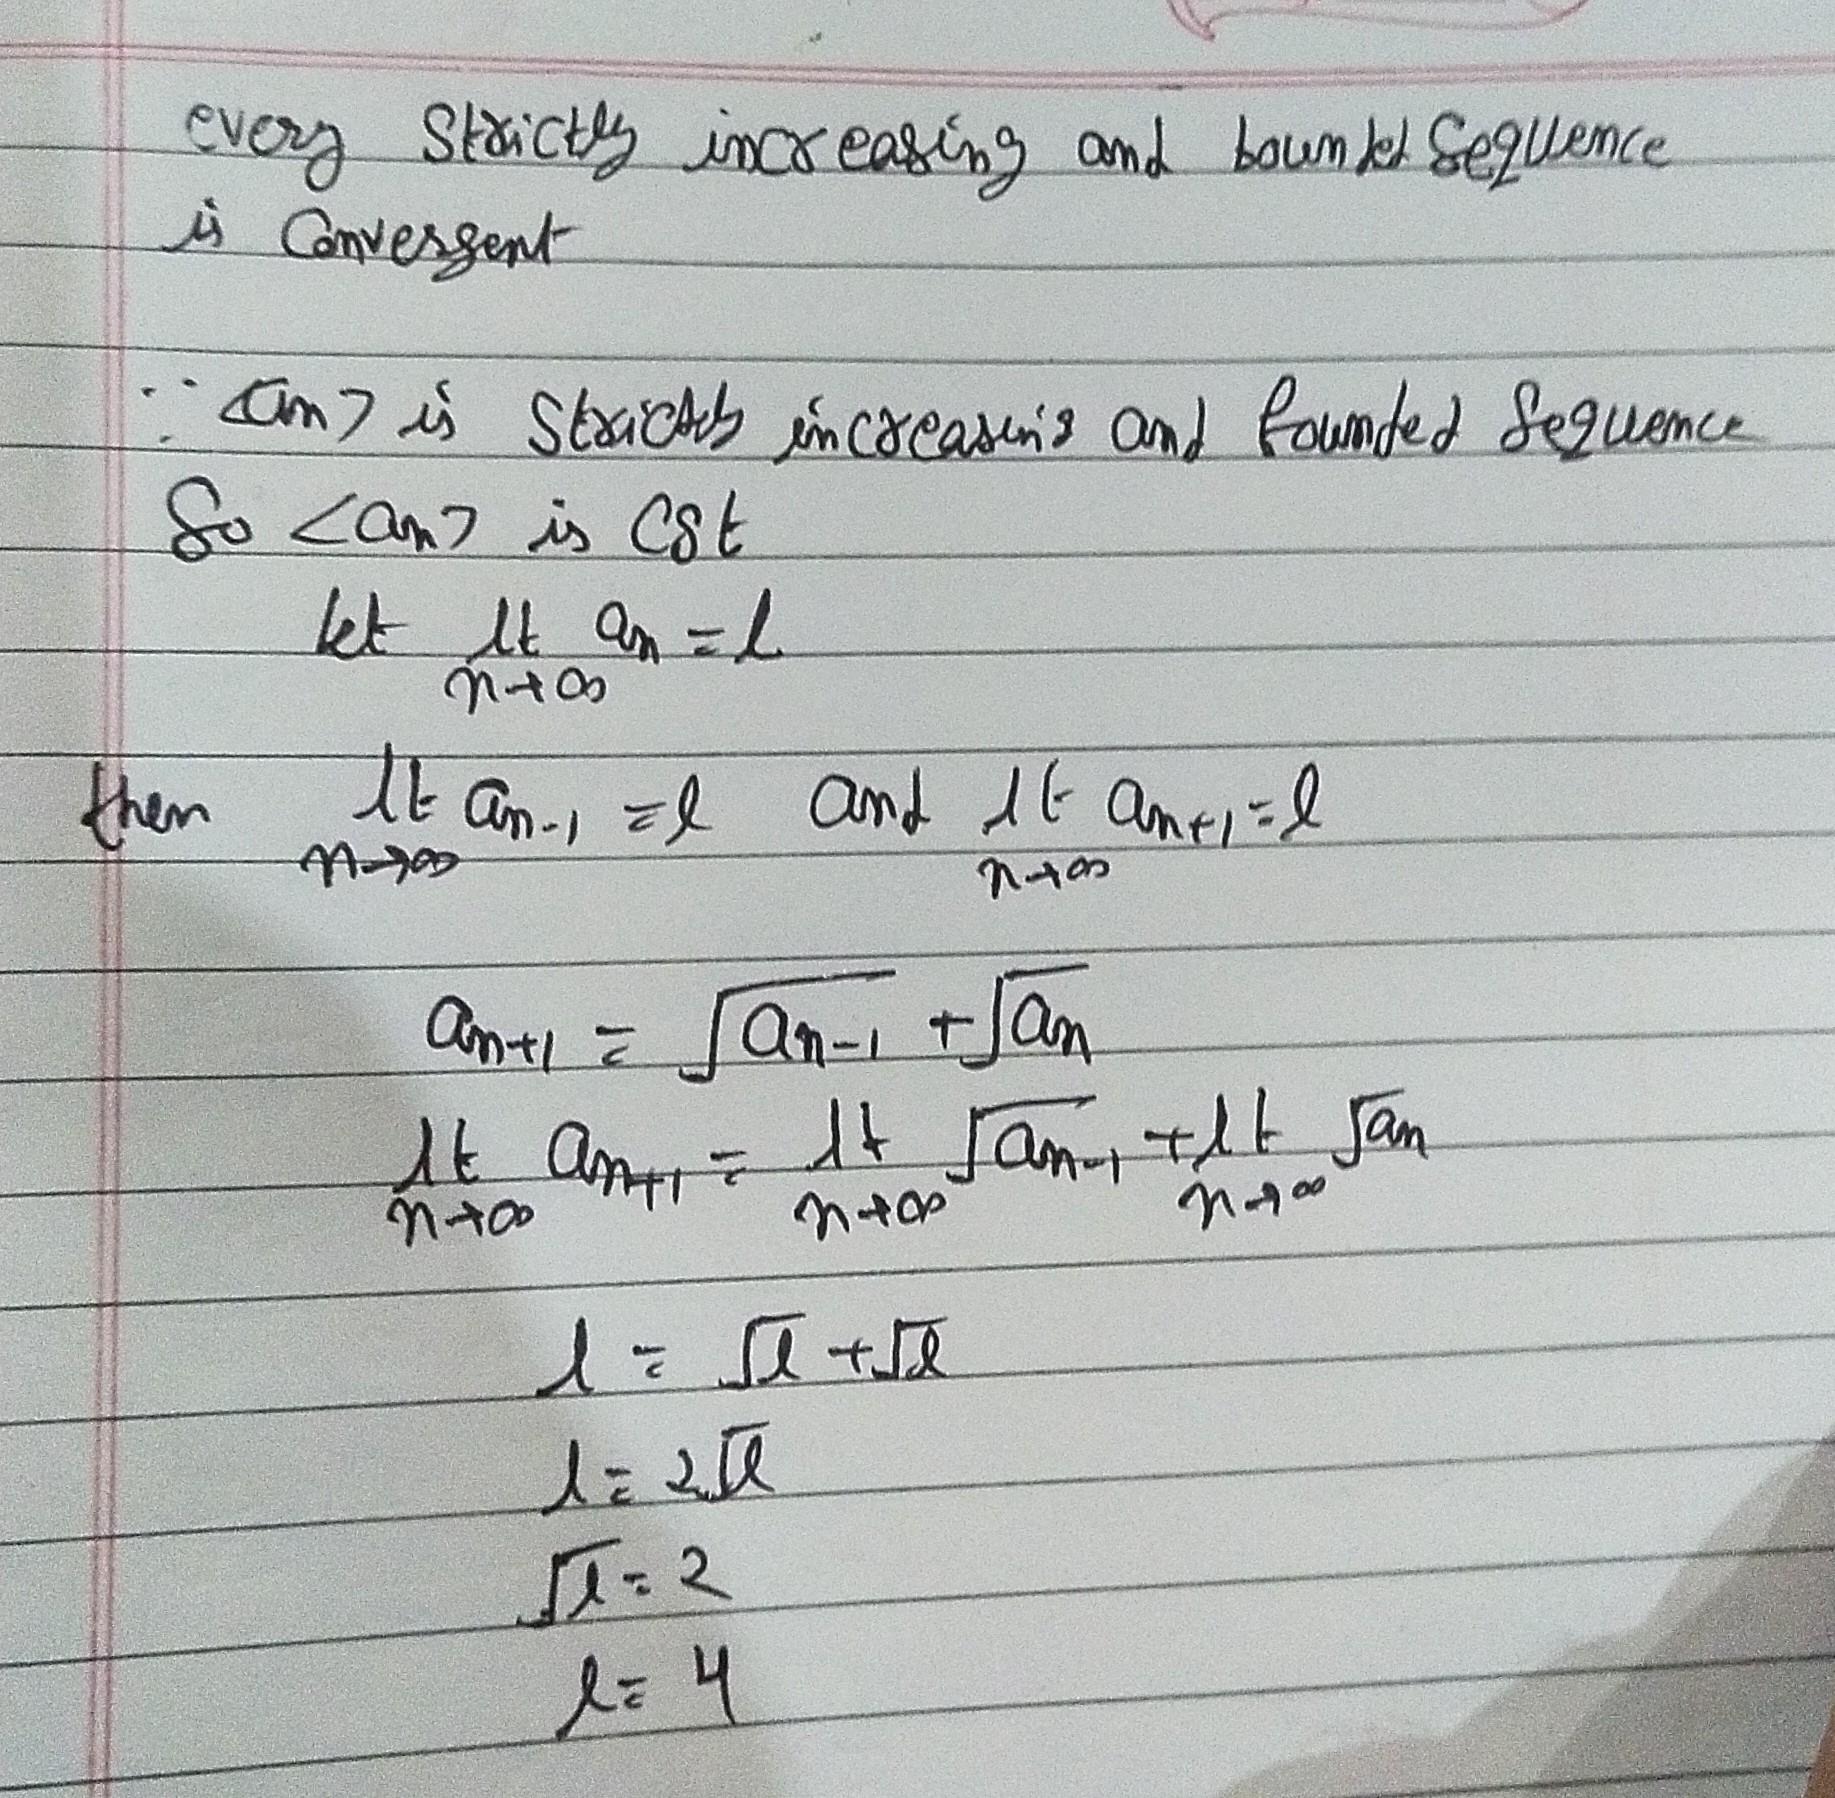 every Strictly increasing and bounded Sequence
is Convergent
∵ <an> is Strictly increasing and bounded Sequence
So <an> is Cgt
let lt an = l
n→∞
then lt an-1 = l and lt an+1 = l
n→∞ n→∞
an+1 = √an-1 + √an
lt an+1 = lt √an-1 + lt √an
n→∞ n→∞ n→∞
l = √l + √l
l = 2√l
√l = 2
l = 4